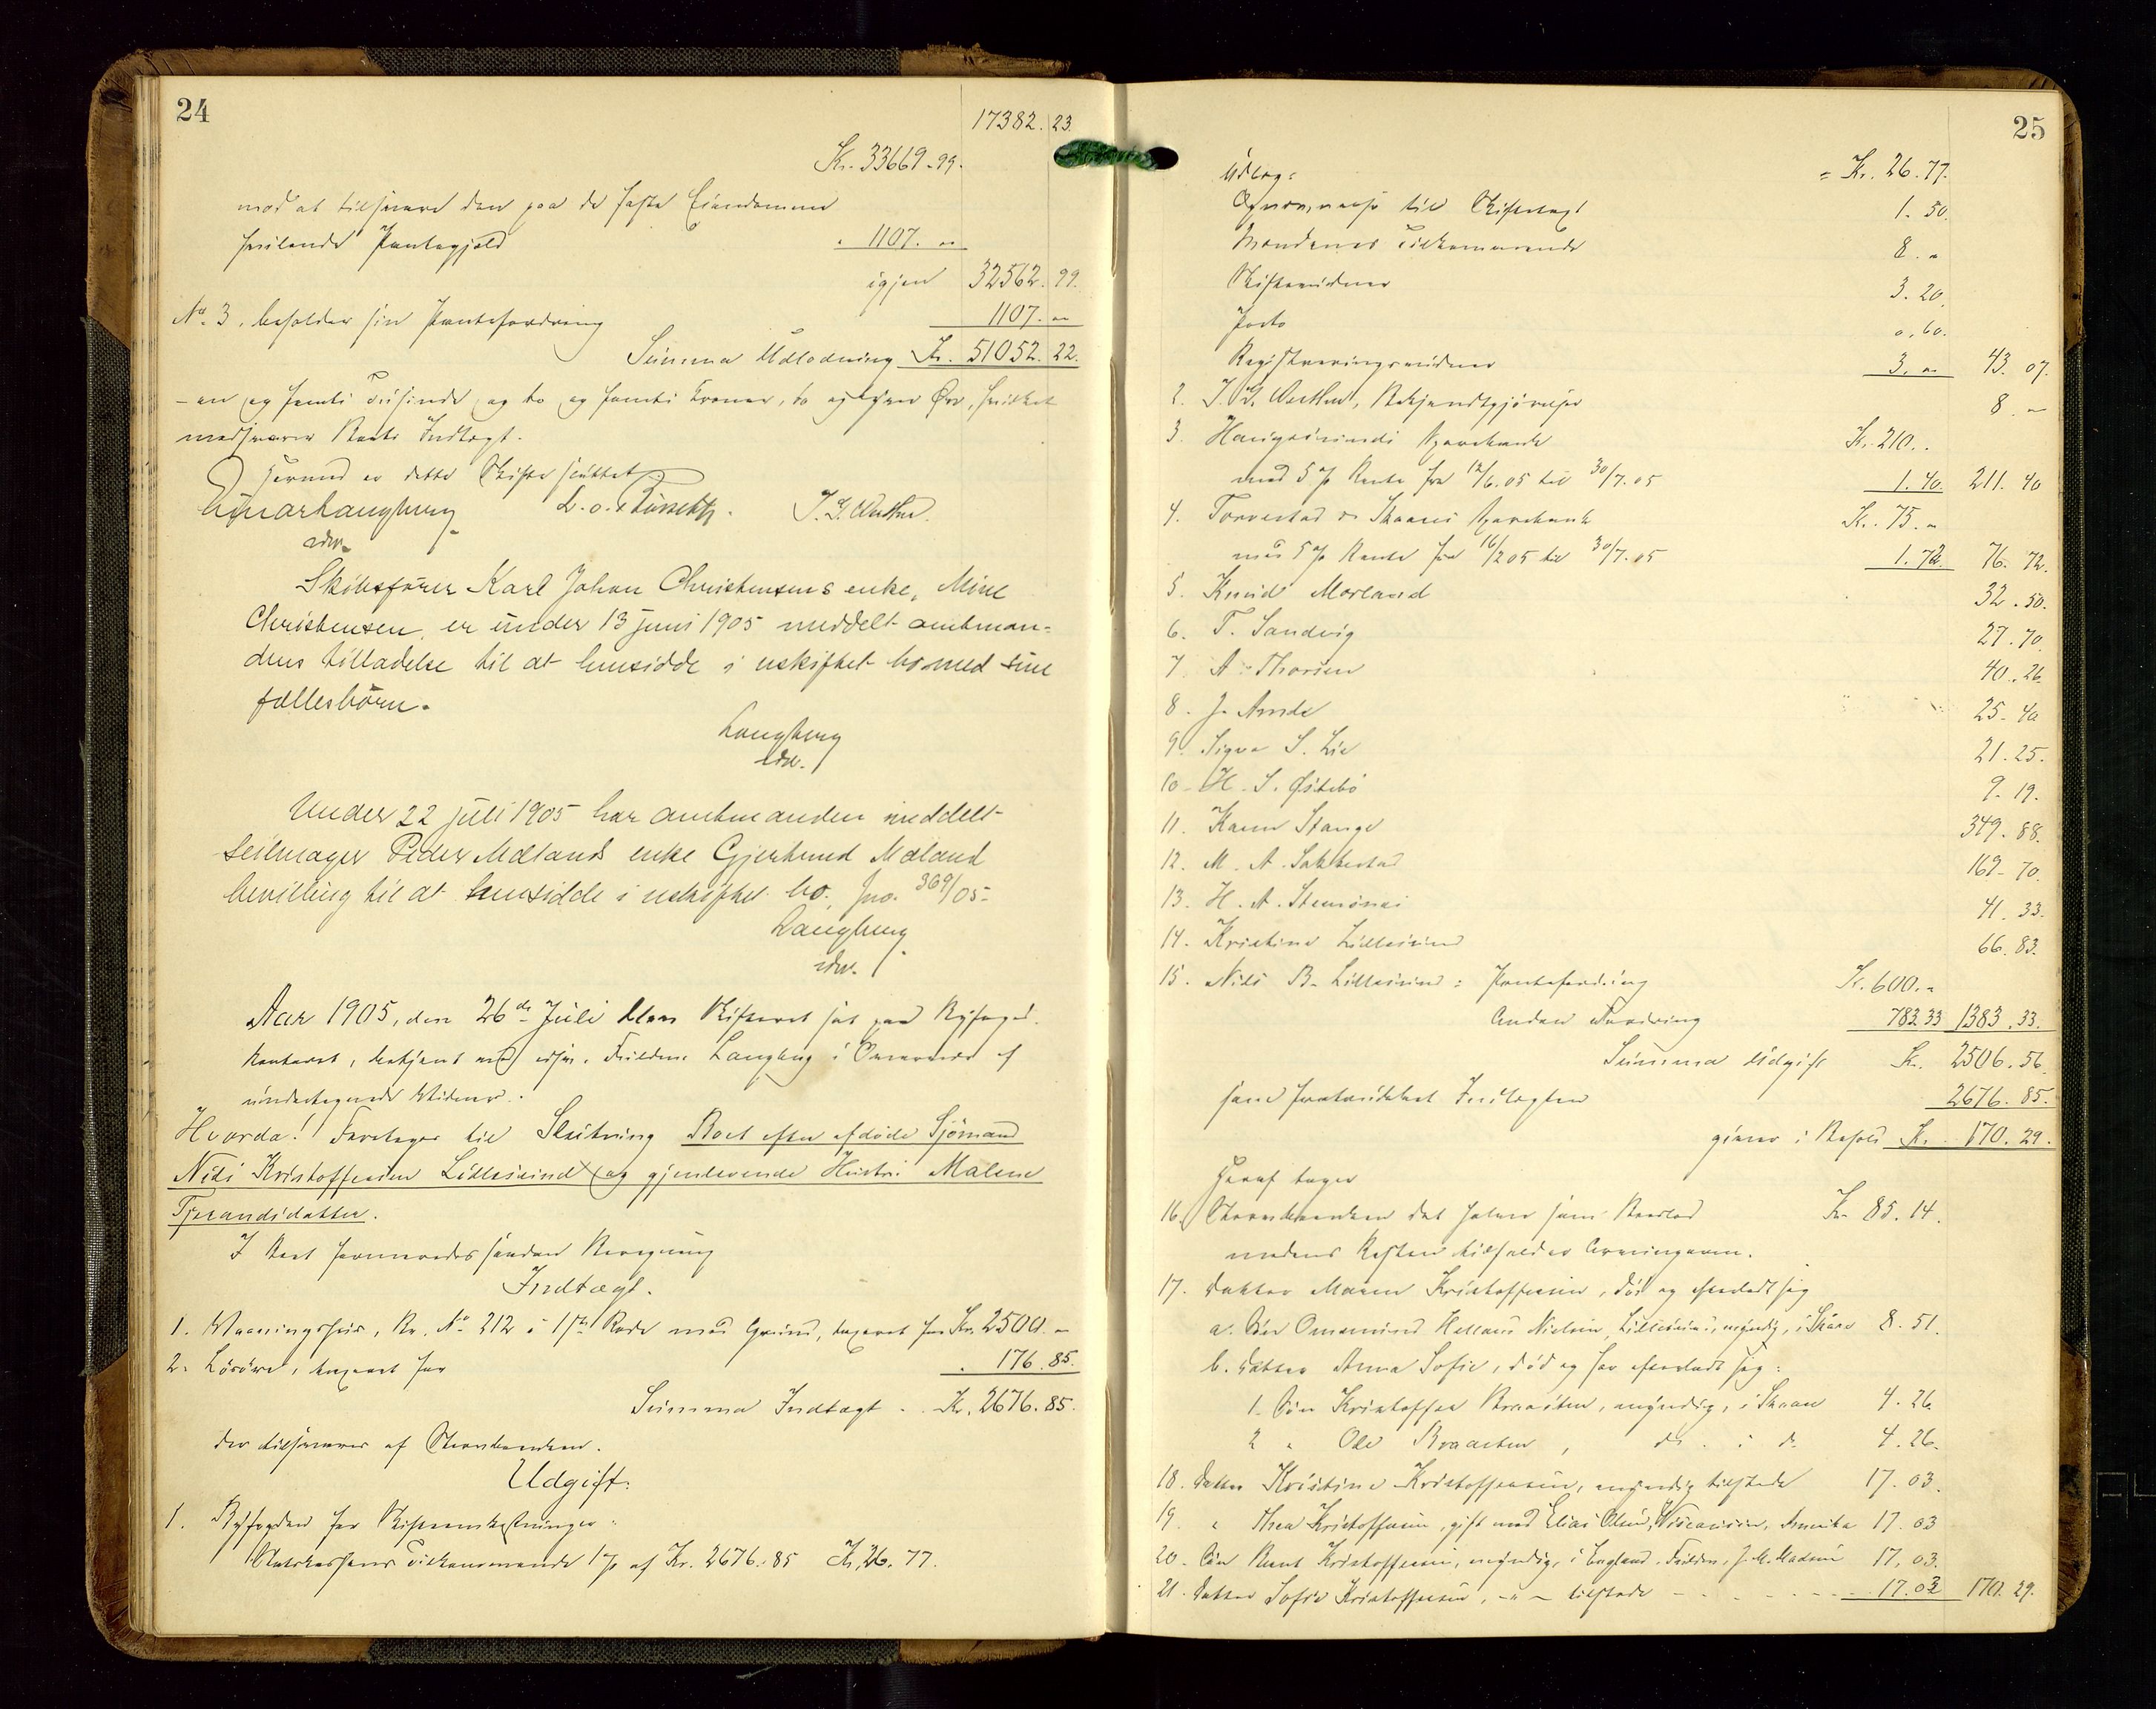 24
17382. 23.
Kr. 33669.99.
mod at tilsvare den paa de faste Eiendomme
hvilende Pantegjæld " 1107. "
igjen 32562. 99.
No. 3, beholder sin Pantefordring 1107. "
Summa Udlodning Kr. 51052. 22.
- en og femti Tusinde og to og femti Kroner, to og tyve Øre, hvilket
modsvarer Boets Indtægt.
Hermed er dette Skifte sluttet
Langberg J. G. Wathne.
edsv.
Skibsfører Karl Johan Christensens enke, Mine
Christensen, er under 13 juni 1905 meddelt amtman-
dens tilladelse til at hensidde i uskiftet bo med sine
fællesbørn.
Langberg
edsv.
Under 22 juli 1905 har amtmanden meddelt
seilmager Peder Mælands enke Gjertrud Mæland
bevilling til at hensidde i uskiftet bo. Jno. 369/05.
Langberg
edsv.
Aar 1905, den 26de Juli blev Skifteret sat paa Byfoged-
kontoret, betjent ved edsv. Fuldm. Langberg i Overvær af
undertegnede Vidner.
Hvorda! Foretoges til Slutning Boet efter afdøde Sjömand
Nils Kristoffersen Lillesund og gjenlevende Hustru Malene
Tjerandsdatter.
I Boet formeredes saadan Beregning
Indtægt.
1. Vaaningshus, Br. No 212 i 1ste Rode med Grund, taxeret for Kr. 2500. "
2. Lösöre, taxeret for " 176. 85.
Summa Indtægt . . Kr. 2676. 85.
der tilsvares af Stervboenken.
Udgift:
1. Byfogden for Skifteomkostninger:
Statskassens Tilkommende 1 % af Kr. 2676. 85 Kr. 26. 77.
25
Udlæg: = Kr. 26. 77.
til Skiftetaxt 1. 50.
Mændenes Tilkommende 8. "
Skiftevidner 3. 20.
Porto 0. 60.
Registreringsvidner 3. " 43. 07.
2. J. G. Wathne, Bekjendtgjörelse 8. "
3. Haugesunds Sparebank Kr. 210. "
med 5 % Rente fra 12/6.05 til 30/7.05 1. 40. 211. 40
4. Torvestad & Skaares Sparebank Kr. 75. "
med 5 % Rente fra 16/2 05 til 30/7.05 1. 72. 76. 72.
5. Knud Morland 32. 50.
6. T. Sandvig 27. 70.
7. A. Thorsen 40. 26.
8. J. Amde 25. 40
9. Signe S. Lie 21. 25.
10. H. S. Östebö 9. 19.
11. Karen Stange 349. 88.
12. M. A. Sakkestad 169. 70.
13. H. A. 41. 33.
14. Kristine Lillesund 66. 83.
15. Nils B. Lillesund: Pantefordring Kr. 600. "
Anden Fordring 783. 33 1383. 33.
Summa Udgift Kr. 2506. 56.
som fratrukket Indtægten 2676. 85.
giver i Behold Kr. 170. 29.
Heraf tager
16. Stervboenken det halve som Boeslod Kr. 85. 14.
medens Resten tilfalder Arvingerne.
17. Datter Maren Kristoffersen, död og efterladt sig
a. Sön Omsmund Nielsen, Lillesund, myndig, i Skåre 8. 51.
b. Datter Anna Sofie, död og har efterladt sig:
1. Sön Kristoffer Braaten, myndig, i Skaare 4. 26.
2 " Ole Braaten, do. i do. 4. 26.
18. Datter Kristine Kristoffersen, myndig, tilstede 17. 03.
19. " Thea Kristoffersen, gift med Elias Olsen, Wisconsin, Amerika 17. 03
20. Sön Bernt Kristoffersen, myndig, i England. Fuldm. J. M. Madsen 17. 03.
21. Datter Sofie Kristoffersen, - " - tilstede - - - - - 17. 03 170. 29.